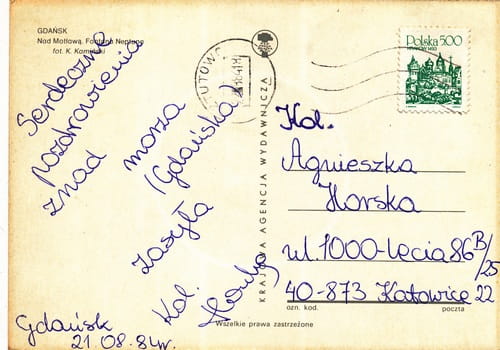 GDAŃSK
Nad Motławą. Fontana Neptuna
fot. K. Kamiński
Serdeczne
pozdrowienia
znad morza
(Gdańska)
zasyła
Kol.
Gdańsk
21.08.84r.
KRAJOWA AGENCJA WYDAWNICZA
Polska 500
Kol.
Agnieszka
Horska
ul. 1000-lecia 86B/25
40-873 Katowice 22
ozn. kod. poczta
Wszelkie prawa zastrzeżone